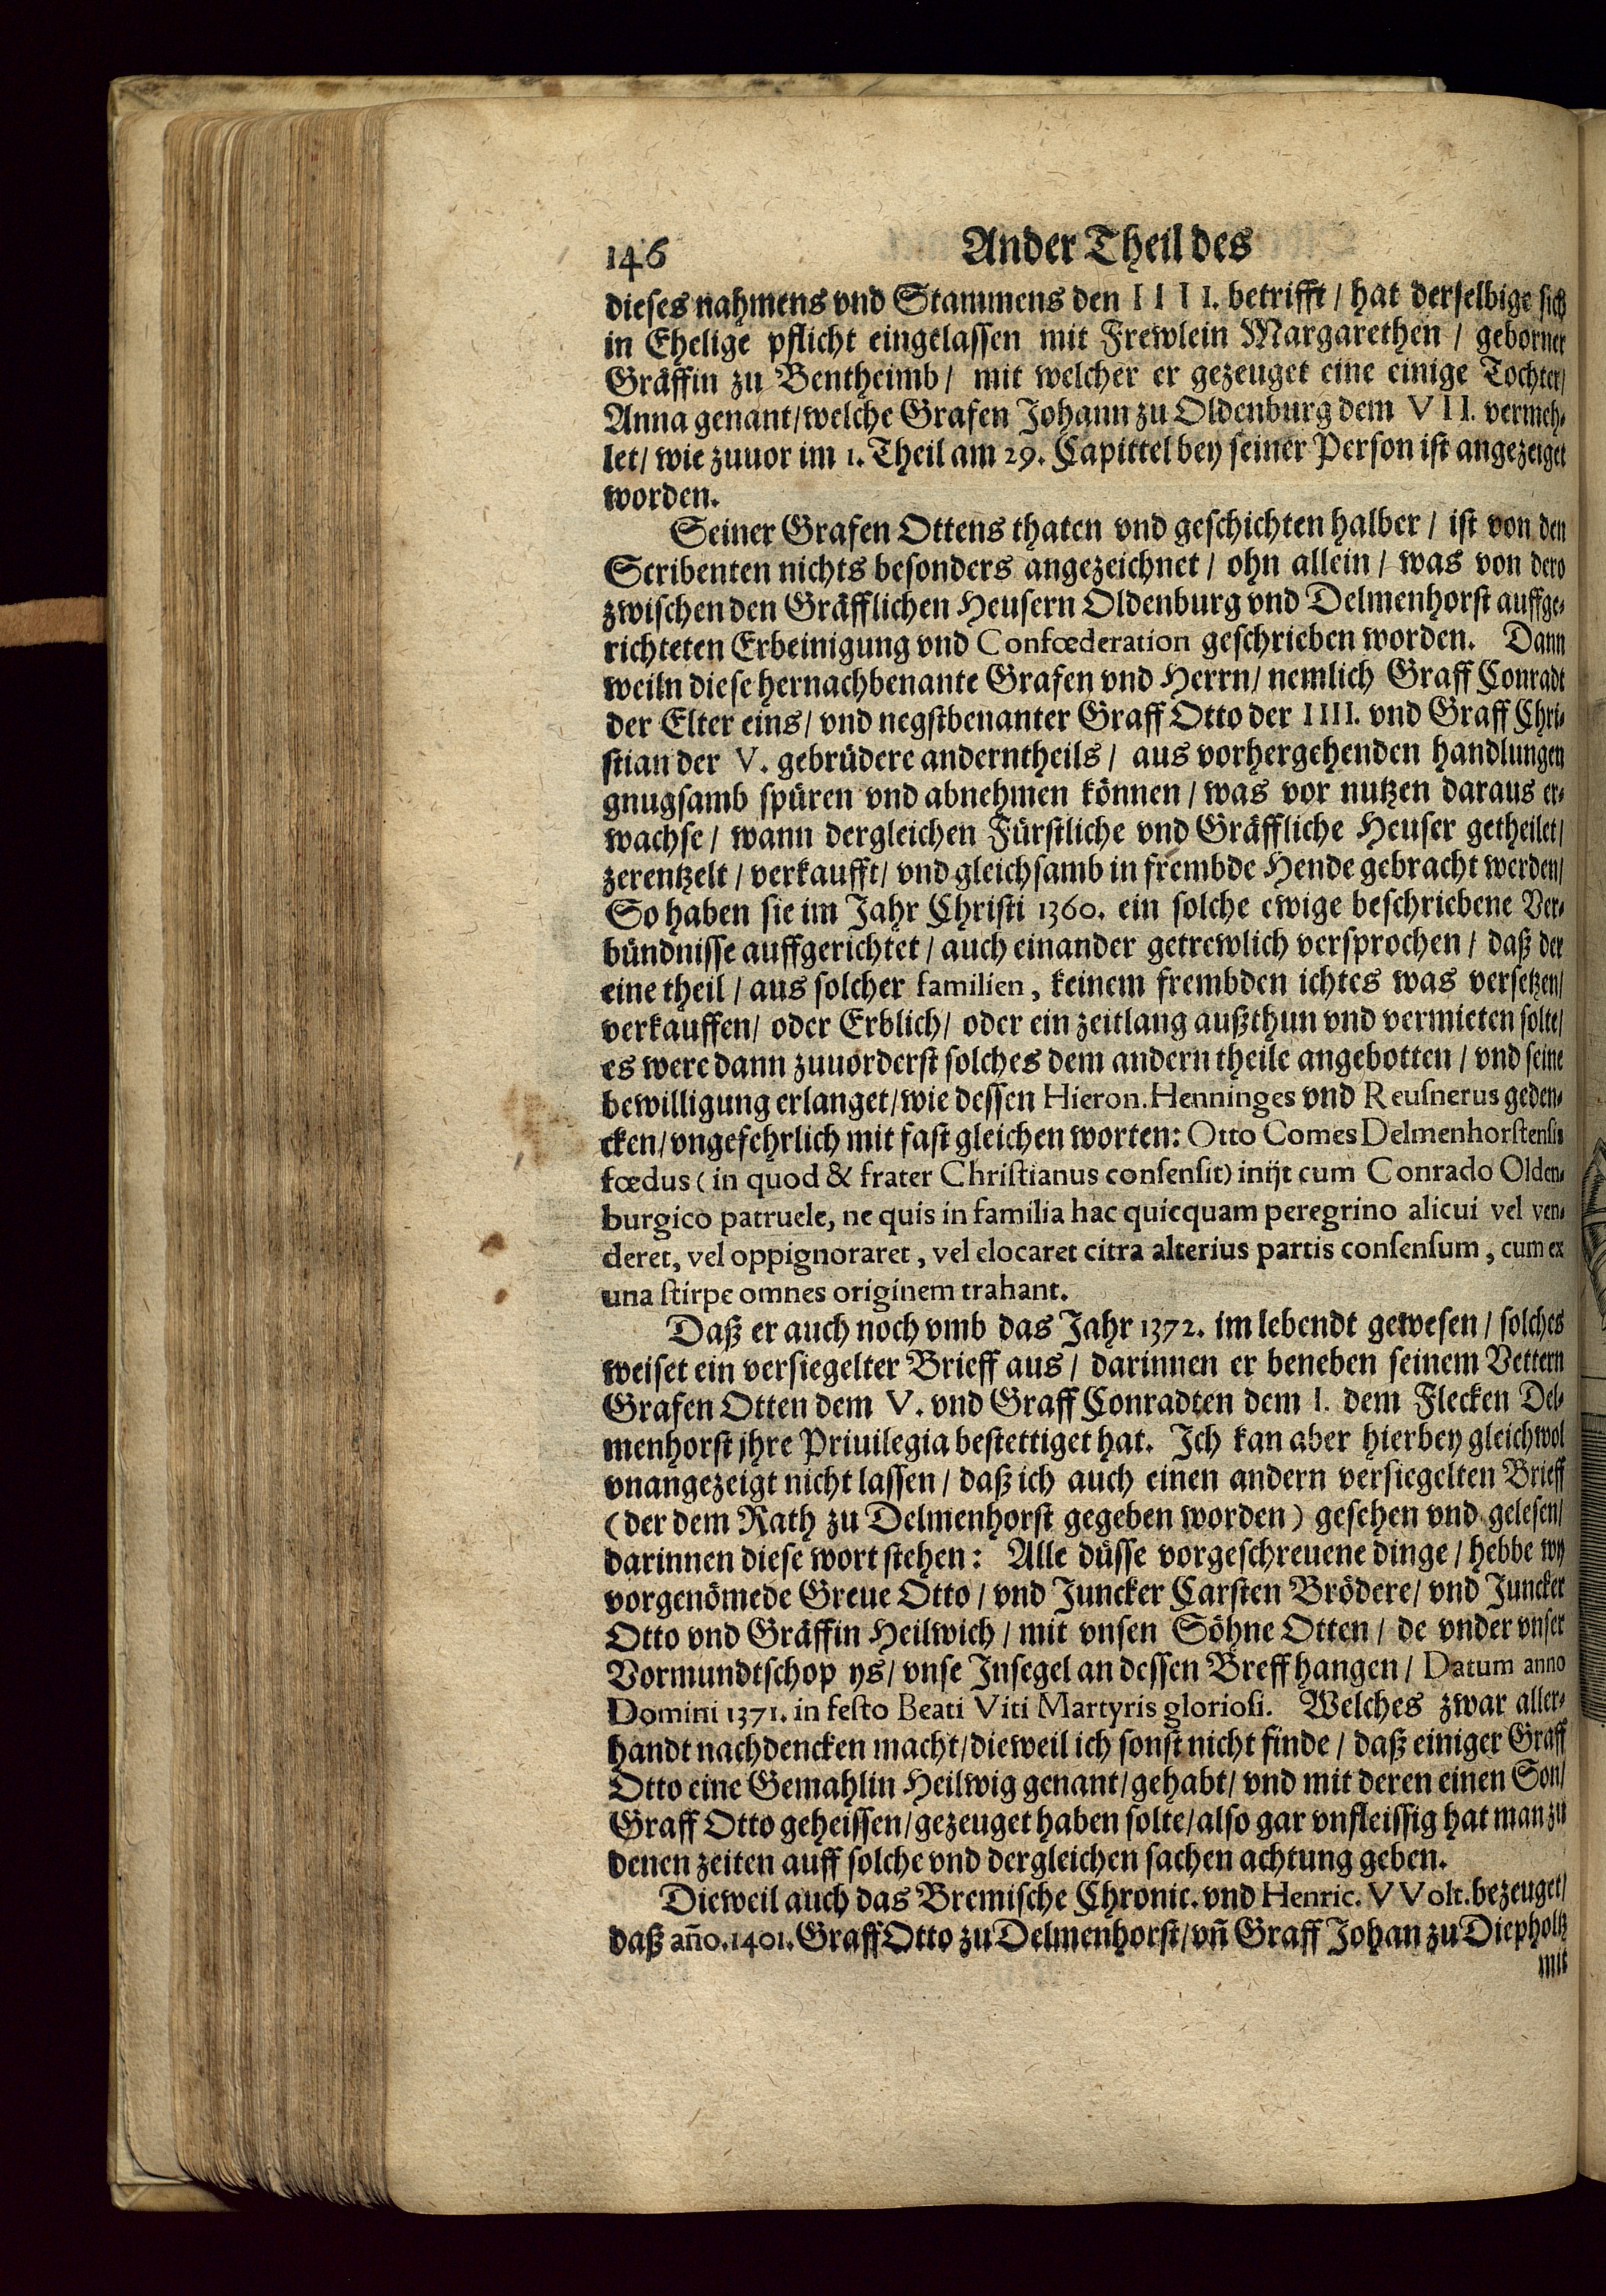 146 Ander Theil des
dieses nahmens vnd Stammens den IIII. betrifft / hat derselbige sich
in Ehelige pflicht eingelassen mit Frewlein Margarethen / geborner
Gräffin zu Bentheimb / mit welcher er gezeuget eine einige Tochter /
Anna genant / welche Grafen Johann zu Oldenburg dem VII. vermeh-
let / wie zuuor im 1. Theil am 29. Capittel bey seiner Person ist angezeiget
worden.
Seiner Grafen Ottens thaten vnd geschichten halber / ist von den
Scribenten nichts besonders angezeichnet / ohn allein / was von dero
zwischen den Gräfflichen Heusern Oldenburg vnd Delmenhorst auffge-
richteten Erbeinigung vnd Confœderation geschrieben worden. Dann
weiln diese hernachbenante Grafen vnd Herrn / nemlich Graff Conradt
der Elter eins / vnd negstbenanter Graff Otto der IIII. vnd Graff Chri-
stian der V. gebrüdere anderntheils / aus vorhergehenden handlungen
gnugsamb spüren vnd abnehmen können / was vor nutzen daraus er-
wachse / wann dergleichen Fürstliche vnd Gräffliche Heuser getheilet /
zerentzelt / verkaufft / vnd gleichsamb in frembde Hende gebracht werden /
So haben sie im Jahr Christi 1360. ein solche ewige beschriebene Ver-
bündnisse auffgerichtet / auch einander getrewlich versprochen / daß der
eine theil / aus solcher familien, keinem frembden ichtes was versetzen /
verkauffen / oder Erblich / oder ein zeitlang außthun vnd vermieten solte /
es were dann zuuorderst solches dem andern theile angebotten / vnd seine
bewilligung erlanget / wie dessen Hieron. Henninges vnd Reusnerus geden-
cken / vngefehrlich mit fast gleichen worten: Otto Comes Delmenhorstensis
fœdus ( in quod & frater Christianus consensit) inijt cum Conrado Olden-
burgico patruele, ne quis in familia hac quicquam peregrino alicui vel ven-
deret, vel oppignoraret, vel elocaret citra alterius partis consensum, cum ex
una stirpe omnes originem trahant.
Daß er auch noch vmb das Jahr 1372. im lebendt gewesen / solches
weiset ein versiegelter Brieff aus / darinnen er beneben seinem Vettern
Grafen Otten dem V. vnd Graff Conradten dem I. dem Flecken Del-
menhorst jhre Priuilegia bestettiget hat. Ich kan aber hierbey gleichwol
vnangezeigt nicht lassen / daß ich auch einen andern versiegelten Brieff
(der dem Rath zu Delmenhorst gegeben worden) gesehen vnd gelesen /
darinnen diese wort stehen: Alle düsse vorgeschreuene dinge / hebbe wy
vorgenömede Greue Otto / vnd Juncker Carsten Brödere / vnd Juncker
Otto vnd Gräffin Heilwich / mit vnsen Söhne Otten / de vnder vnser
Vormundtschop ys / vnse Insegel an dessen Breff hangen / Datum anno
Domini 1371. in festo Beati Viti Martyris gloriosi. Welches zwar aller-
handt nachdencken macht / dieweil ich sonst nicht finde / daß einiger Graff
Otto eine Gemahlin Heilwig genant / gehabt / vnd mit deren einen Son /
Graff Otto geheissen / gezeuget haben solte / also gar vnfleissig hat man zu
denen zeiten auff solche vnd dergleichen sachen achtung geben.
Dieweil auch das Bremische Chronic. vnd Henric. VVolt. bezeuget /
daß año. 1401. Graff Otto zu Delmenhorst / vñ Graff Johan zu Diepholtz
mit